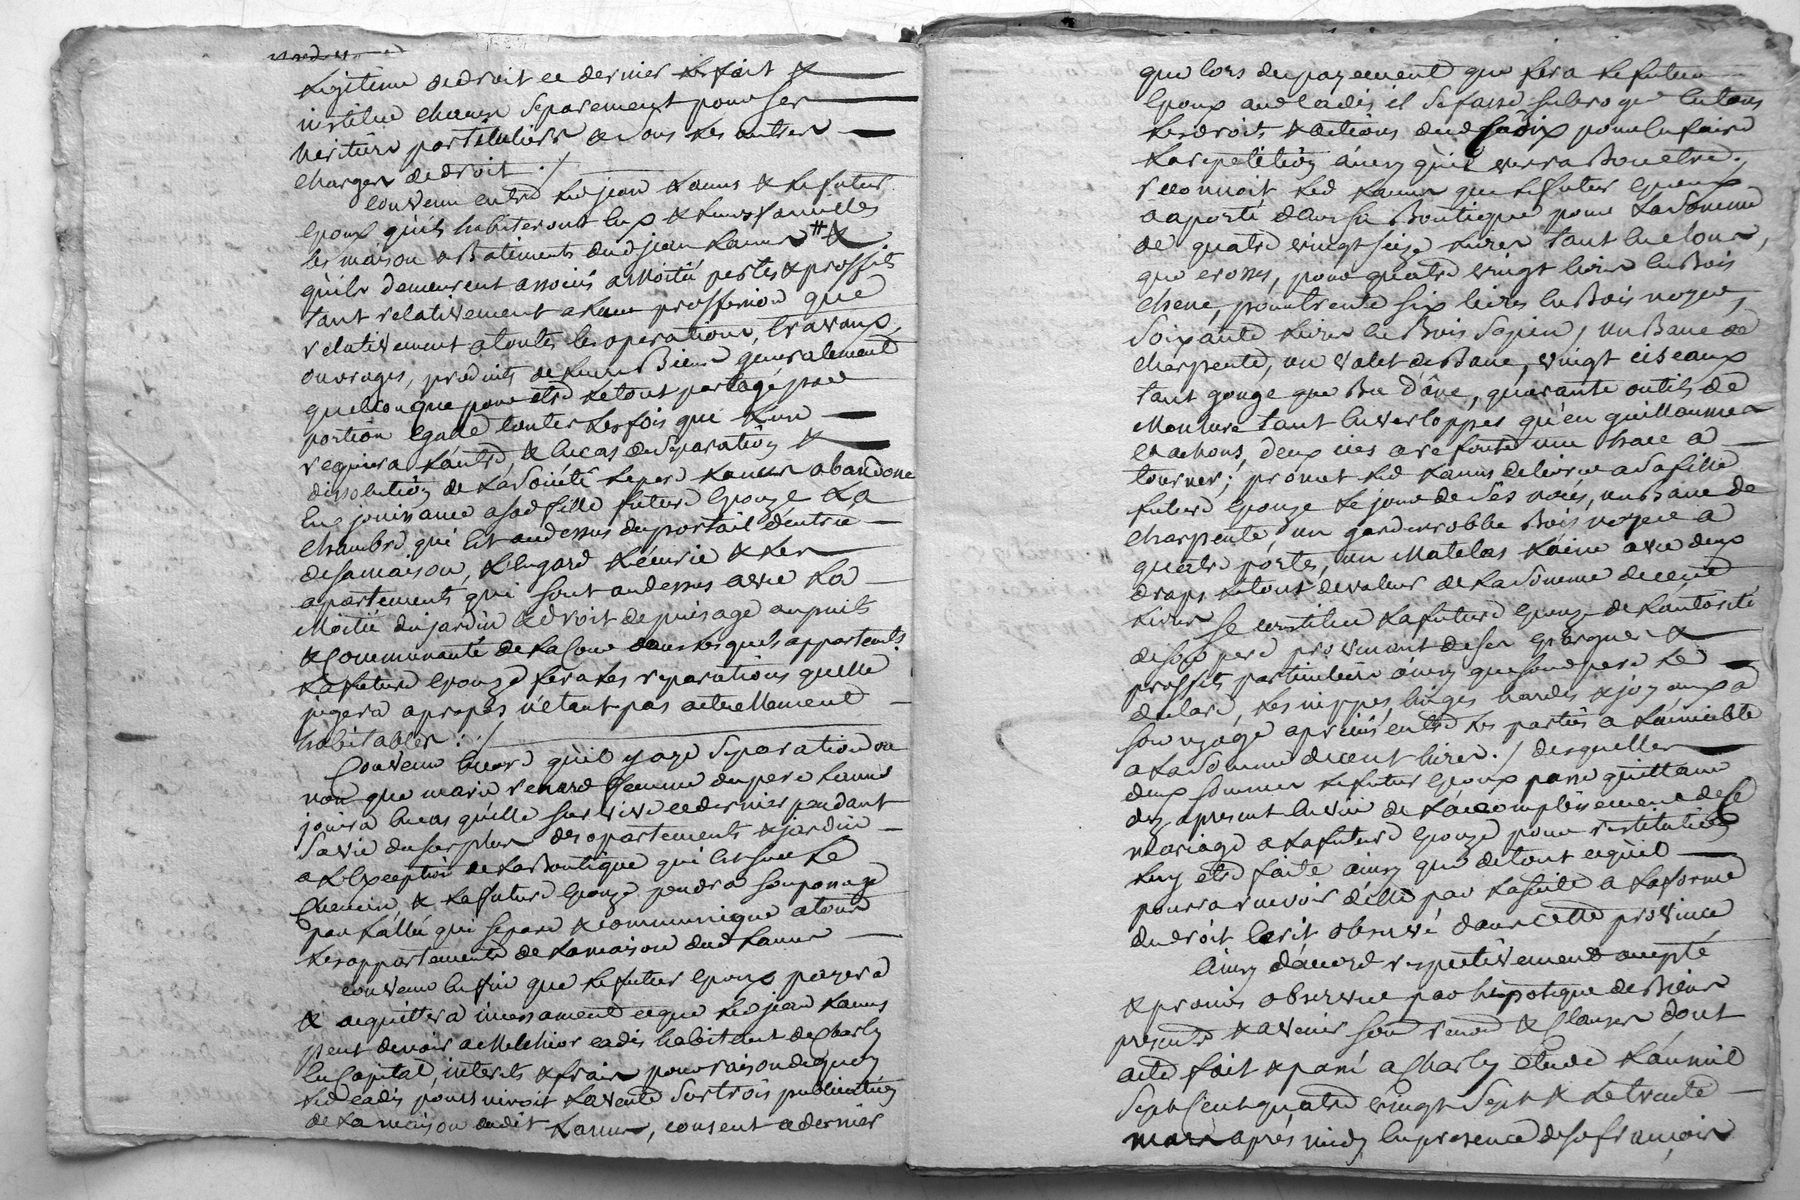 Legitime de droit ce dernier les fait &
institue chacun separement pour ses
heritiers particuliers, & sous les autres
charges de droit ./
Convenu entre led jean Lanus & le futur
epoux qu'ils habiteront eux & leurs familles
les maison & Batiments dud jean Lanus # &
qu'ils demeureront associés a Moitié pertes & proffits
tant relativement a leur proffession que
relativement a toutes les operations, travaux,
ouvrages, produits de leurs Biens generalement
quelconque pour etre le tout partagé par
portion egalle toutes les fois que l'un
requiera l'autre, & en cas de separation &
dissolution de la societé le pere Lanus abandone
en jouissance a sad fille future epouze la
chambre qui est au dessus du portail d'entrée
de sa maison, l'engard l'écurie & les
apartements qui sont au dessus avec la
Moitié du jardin & droit de puisage au puits
& communauté de la Cour dans lesquels appartemts
La future epouze fera les reparations quelle
jugera apropos n'etant pas actuellement
habitables ./
Convenu encore qu'il y aye separation ou
non que marie renard femme du pere Lanus
jouira en cas qu'elle survive ce dernier pendant
sa vie du surplus des apartements & jardin
a l'Exception de la Boutique qui est sur le
Chemin & la future epouze prendra son passage
par l'allée qui separe & communique a tous
les appartements de la maison dud Lanus
convenu enfin que le futur epoux payera
& acquittera incessament ce que led jean Lanus
peut devoir a Melchior cadis habitant de Charly
en Capital, interets & frais pour raison de quoy
led cadis poursuivoit la vente sur trois publications
de la maison dudit Lanus, consent a dernier
que lors du payement que fera le futur
epoux aud cadis il se fasse subroge en tous
les droits & actions dud Cadix pour en faire
la repetition ainsy qu'il verra Bon etre.
reconnoit led Lanus que le futur epoux
a aporté dans sa Boutique pour la somme
de quatre vingt seize livres tant en clous,
que crosses, pour quatre vingt livres en Bois
chene, pour trente six livres en Bois noyer,
soixante livres en Bois sapin, un Banc de
charpente, un valet de Banc, vingt ciseaux
tant gouge que Bec d'âne, quarante outils de
Moulure tant enverloppes qu'en guillaumes
et rabots, deux cies a refendre une trace a
tourner; promet led Lanus delivrer a sa fille
future epouze le jour de ses noces, un Banc de
charpente, un garderrobbe Bois noyer a
quatre portes, un Matelas Laine avec deux
draps le tout de valeur de la somme de cent
livres se constitue la future epouze de l'autorité
de son pere provenant de ses epargnes &
proffits particuliers ainsy que son pere le
declare, les nippes, linges hardes & joyaux a
son usage apreciés entre les parties a l'amiable
a la somme de cent livres ./ desquelles
deux sommes le futur epoux passe quittance
dez apresent en vüe de l'accomplissement de ce
mariage a la future epouze pour restitution
luy etre faite ainsy que de tout ce qu'il
pourra recevoir d'elle par la suite a la forme
du droit ecrit observé dans cette province
Ainsy d'accord respectivement accepté
& promis observer par hipoteque de Biens
presents & avenir sous renon & Clauses dont
acte fait & passé a Charly etude L'an mil
sept Cent quatre vingt sept & le trente
mars après midy, en presence de sr francois